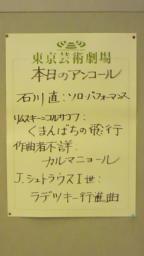 東京芸術劇場
本日のアンコール
石川 直:ソロ・パフォーマンス
リムスキー=コルサコフ:
くまんばちの飛行
作曲者不詳:
カルマニョール
J.シュトラウスⅠ世:
ラデツキー行進曲